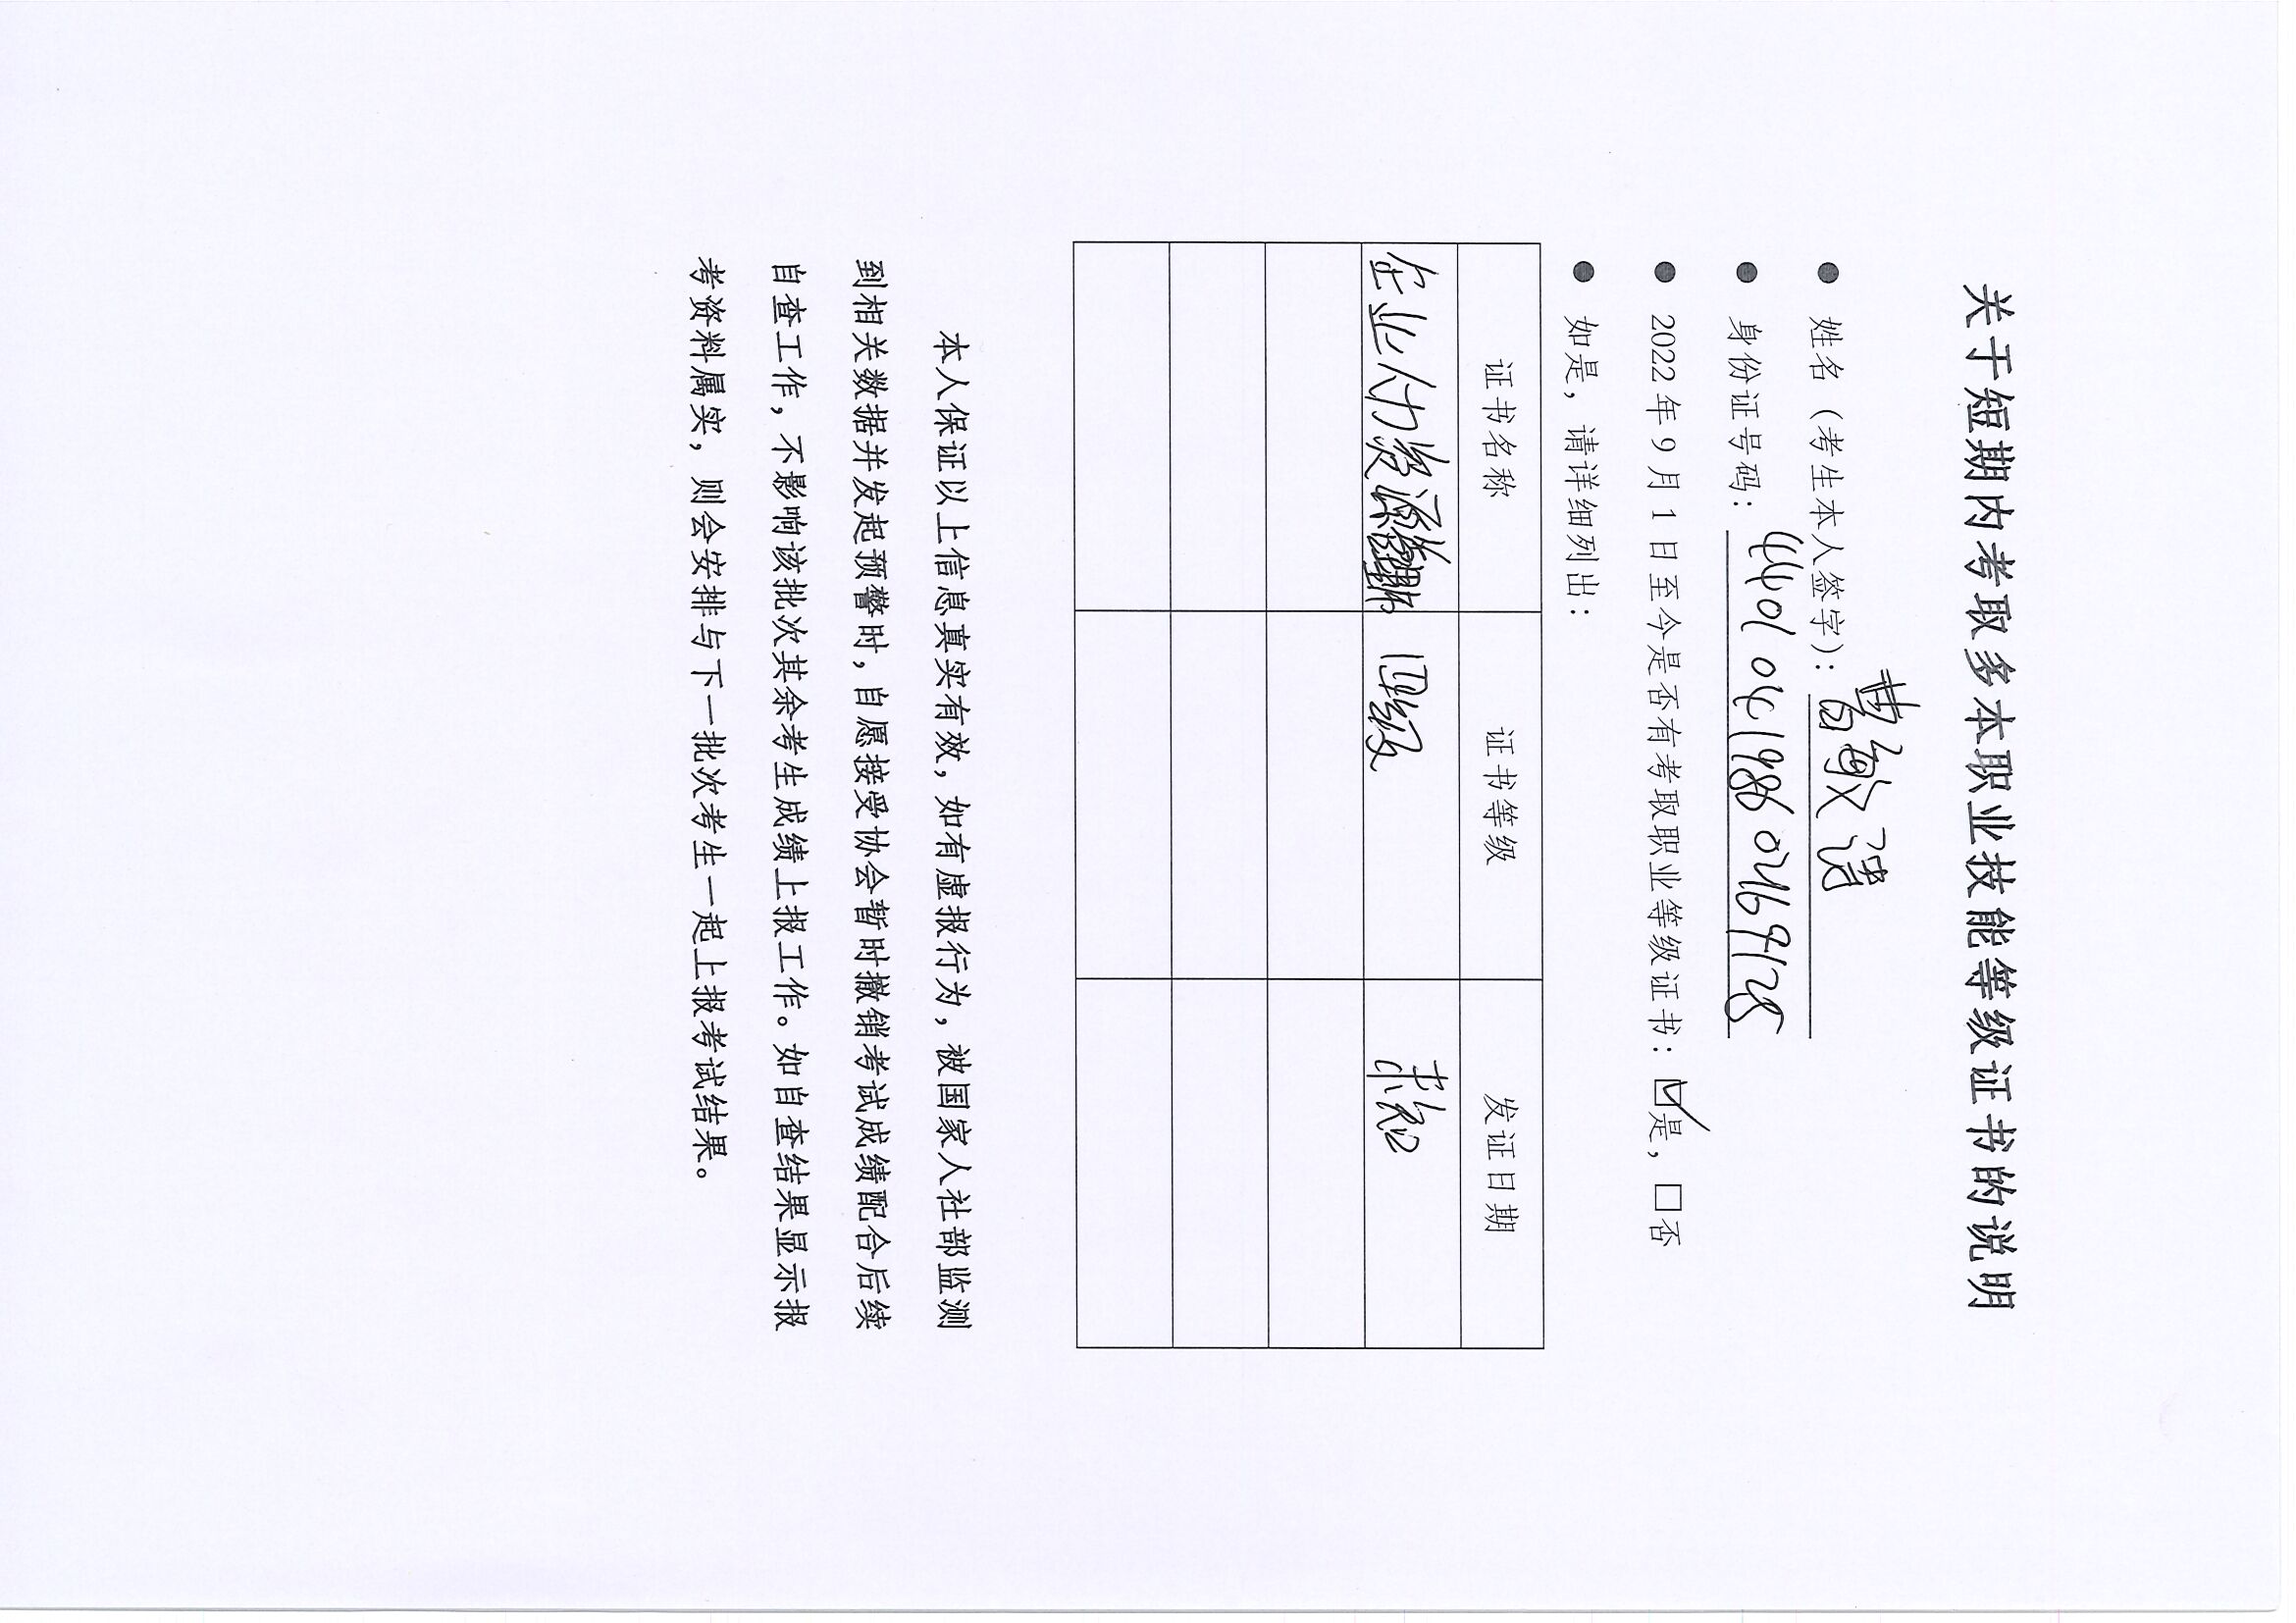 关于短期内考取多本职业技能等级证书的说明
● 姓名（考生本人签字）：黄敏清
● 身份证号码：440104198602169128
● 2022年9月1日至今是否有考取职业等级证书：☑是，□否
● 如是，请详细列出：
证书名称 证书等级 发证日期
企业人力资源管理师 四级 未知
本人保证以上信息真实有效，如有虚报行为，被国家人社部监测
到相关数据并发起预警时，自愿接受协会暂时撤销考试成绩配合后续
自查工作，不影响该批次其余考生成绩上报工作。如自查结果显示报
考资料属实，则会安排与下一批次考生一起上报考试结果。